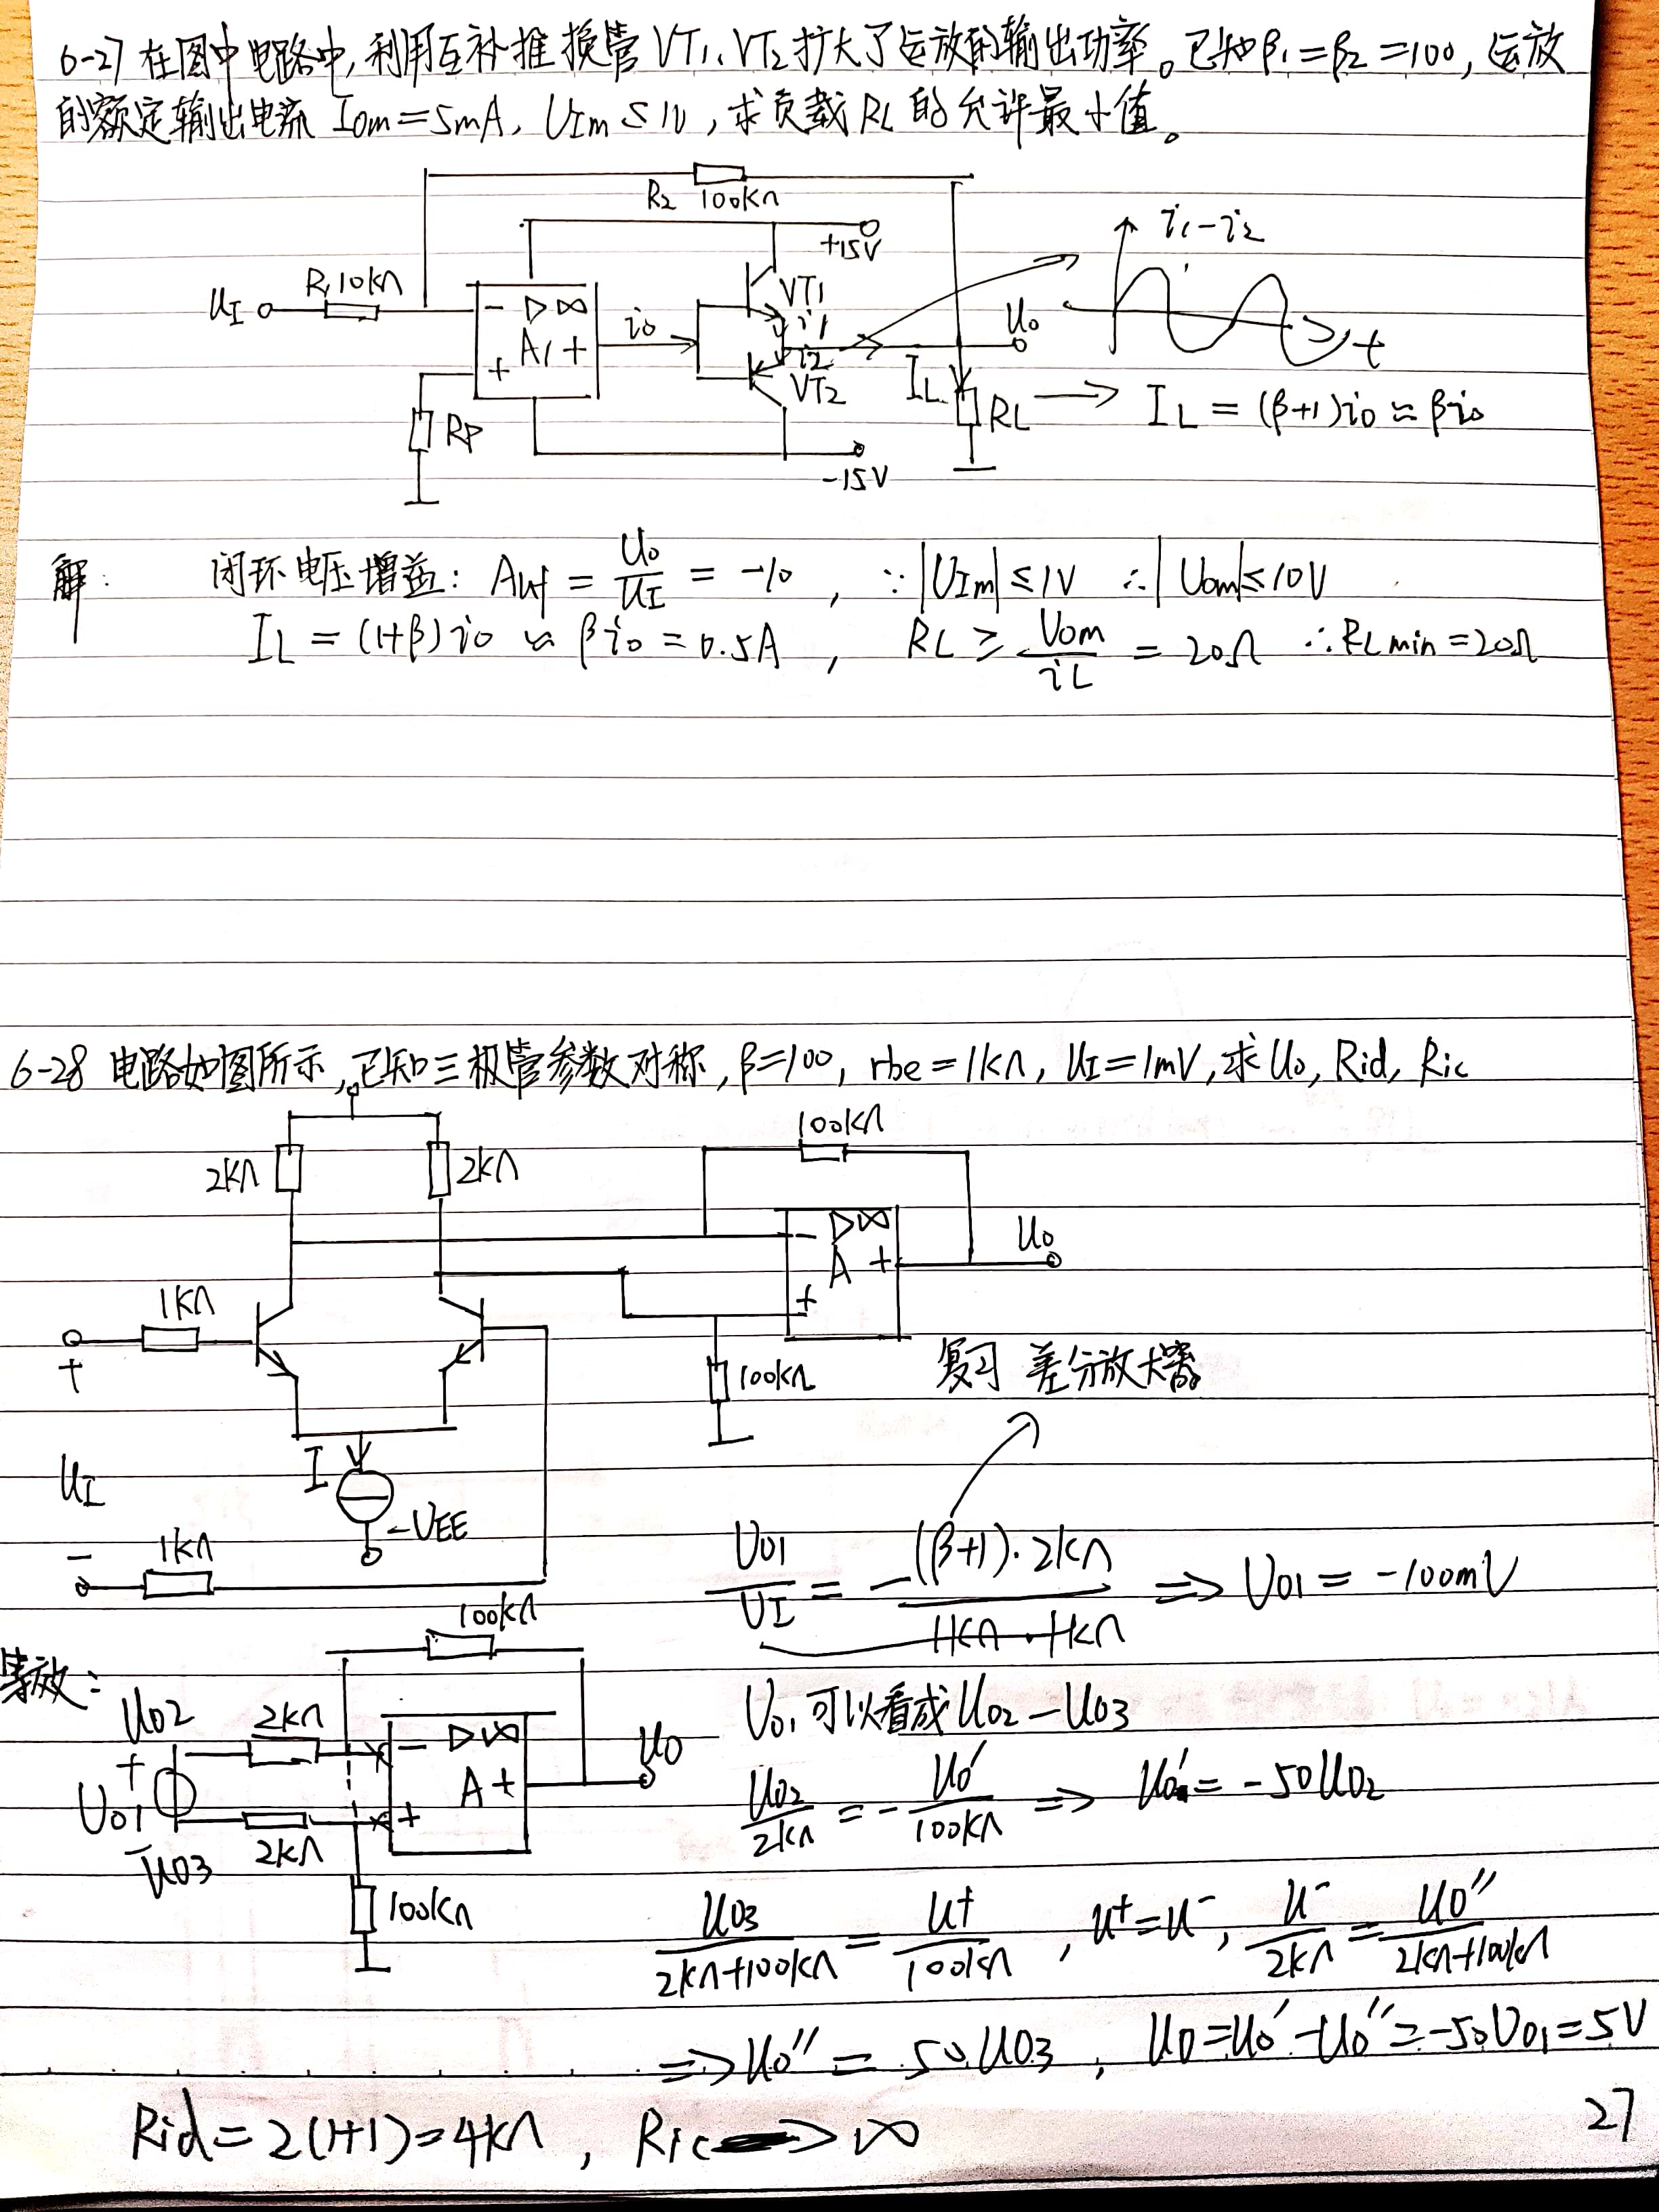 6-27 在图中电路中,利用互补推换管 VT1、VT2 扩大了运放的输出功率。已知β1=β2=100, 运放
的额定输出电流 Iom=5mA, UIm≤1V, 求负载 RL 的允许最小值。
R2 100kΩ
+15V
i1-i2
R1 10kΩ
UI
- ▷∞
A1 +
+
io
VT1
i1
i2
VT2
Uo
t
RP
IL
RL → IL = (β+1)io ≈ βio
-15V
解: 闭环电压增益: Auf = Uo/UI = -10, ∵|UIm|≤1V ∴|Uom|≤10V
IL = (1+β)io ≈ βio = 0.5A, RL ≥ Uom/iL = 20Ω ∴RLmin=20Ω
6-28 电路如图所示,已知三极管参数对称,β=100, rbe=1kΩ, UI=1mV,求Uo, Rid, Ric
100kΩ
2kΩ
2kΩ
- ▷∞
A +
+
Uo
1kΩ
+
100kΩ
复习 差分放大器
UI
I
-VEE
-
1kΩ
U01/UI = -(β+1)·2kΩ/1kΩ+1kΩ ⇒ U01 = -100mV
等效:
100kΩ
U02
2kΩ
- ▷∞
A +
+
UO
U01可以看成U02-U03
+
U01
-
U03
2kΩ
U02/2kΩ = -U0'/100kΩ ⇒ U0' = -50U02
100kΩ
U03/2kΩ+100kΩ = U+/100kΩ, U+=U-, U-/2kΩ = U0''/2kΩ+100kΩ
⇒U0'' = 50U03, U0=U0'-U0''=-50U01=5V
Rid=2(1+1)=4kΩ, Ric→∞
27